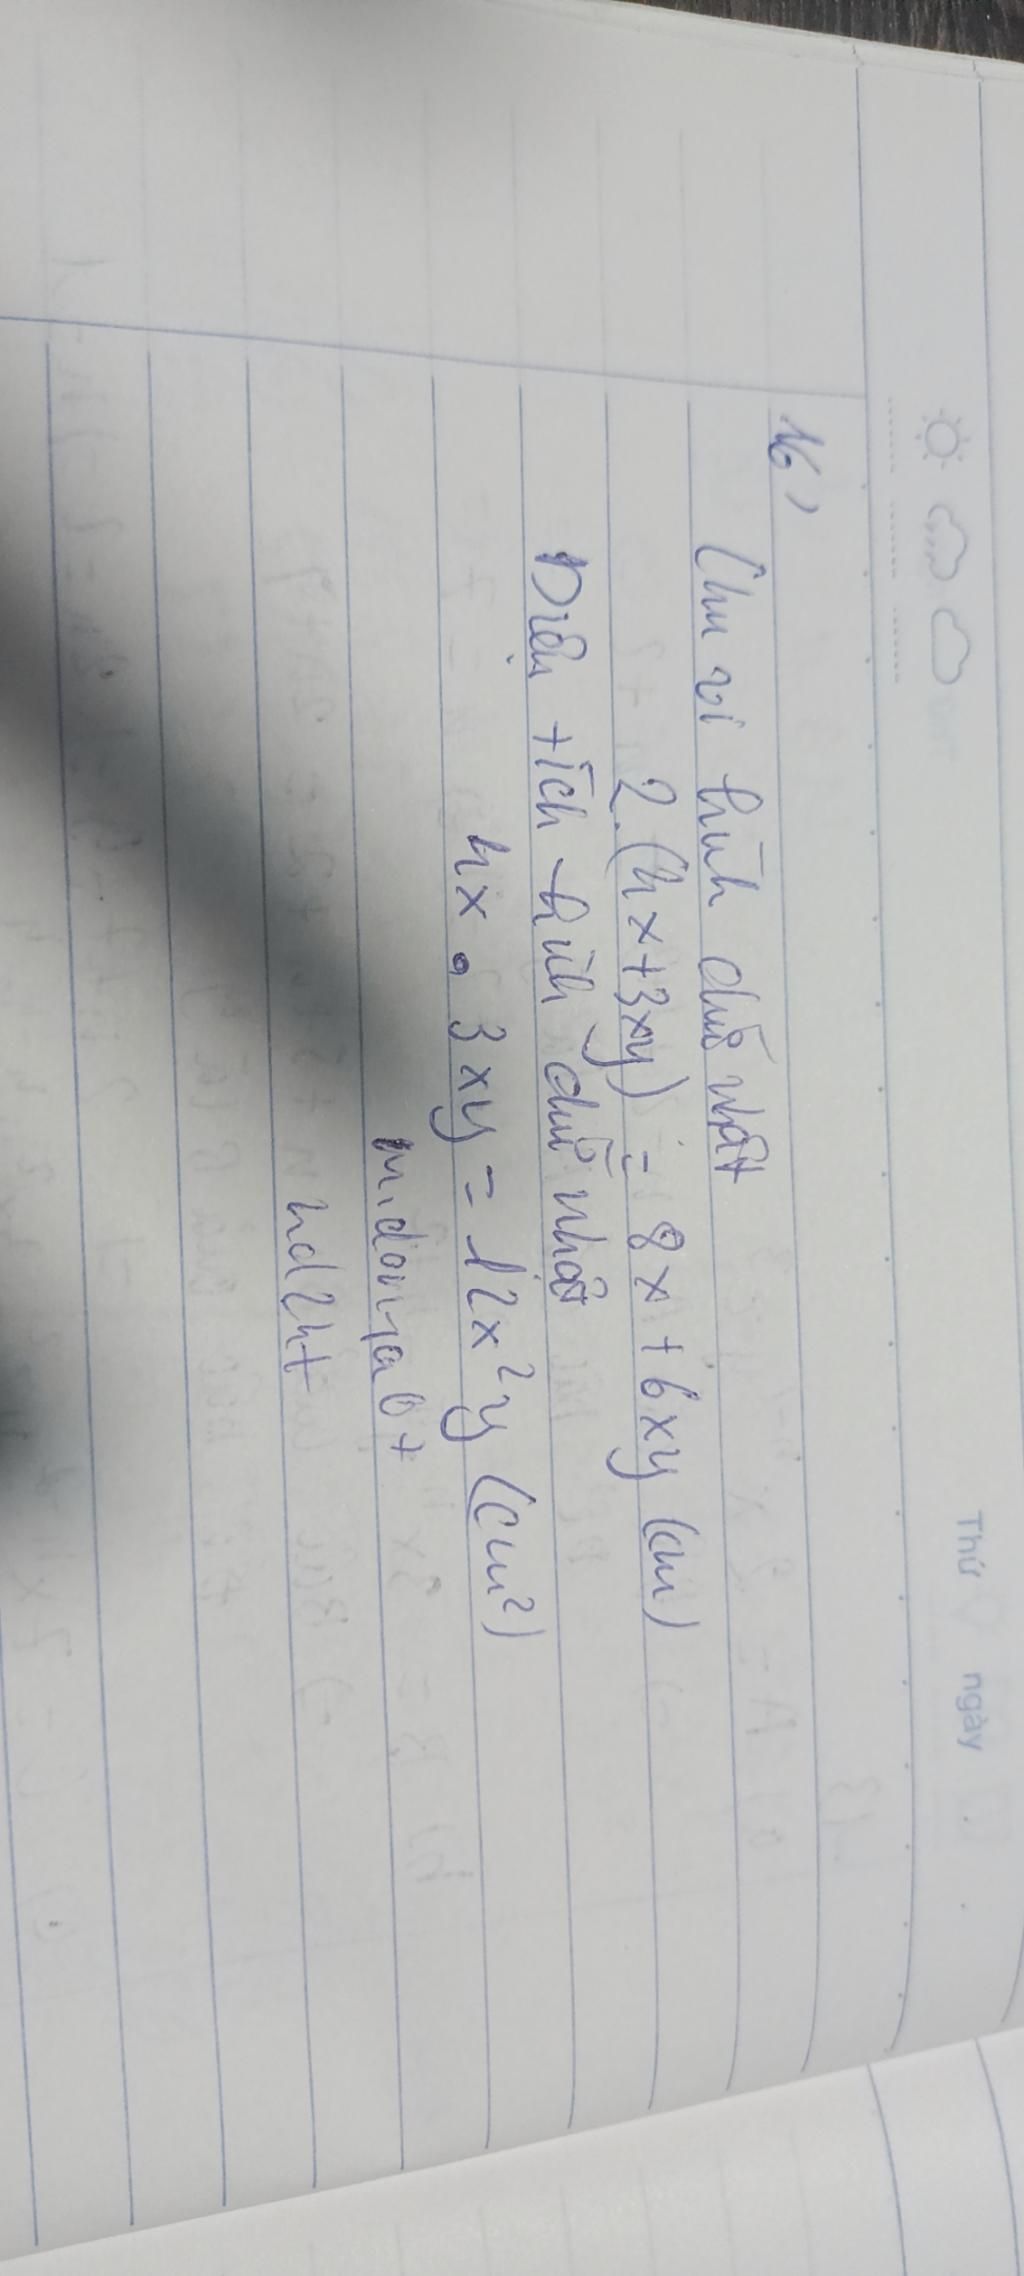 Thứ ngày
16)
Chu vi hình chữ nhật
2.(4x+3xy) = 8x + 6xy (cm)
Diện tích hình chữ nhật
4x . 3xy = 12x²y (cm²)